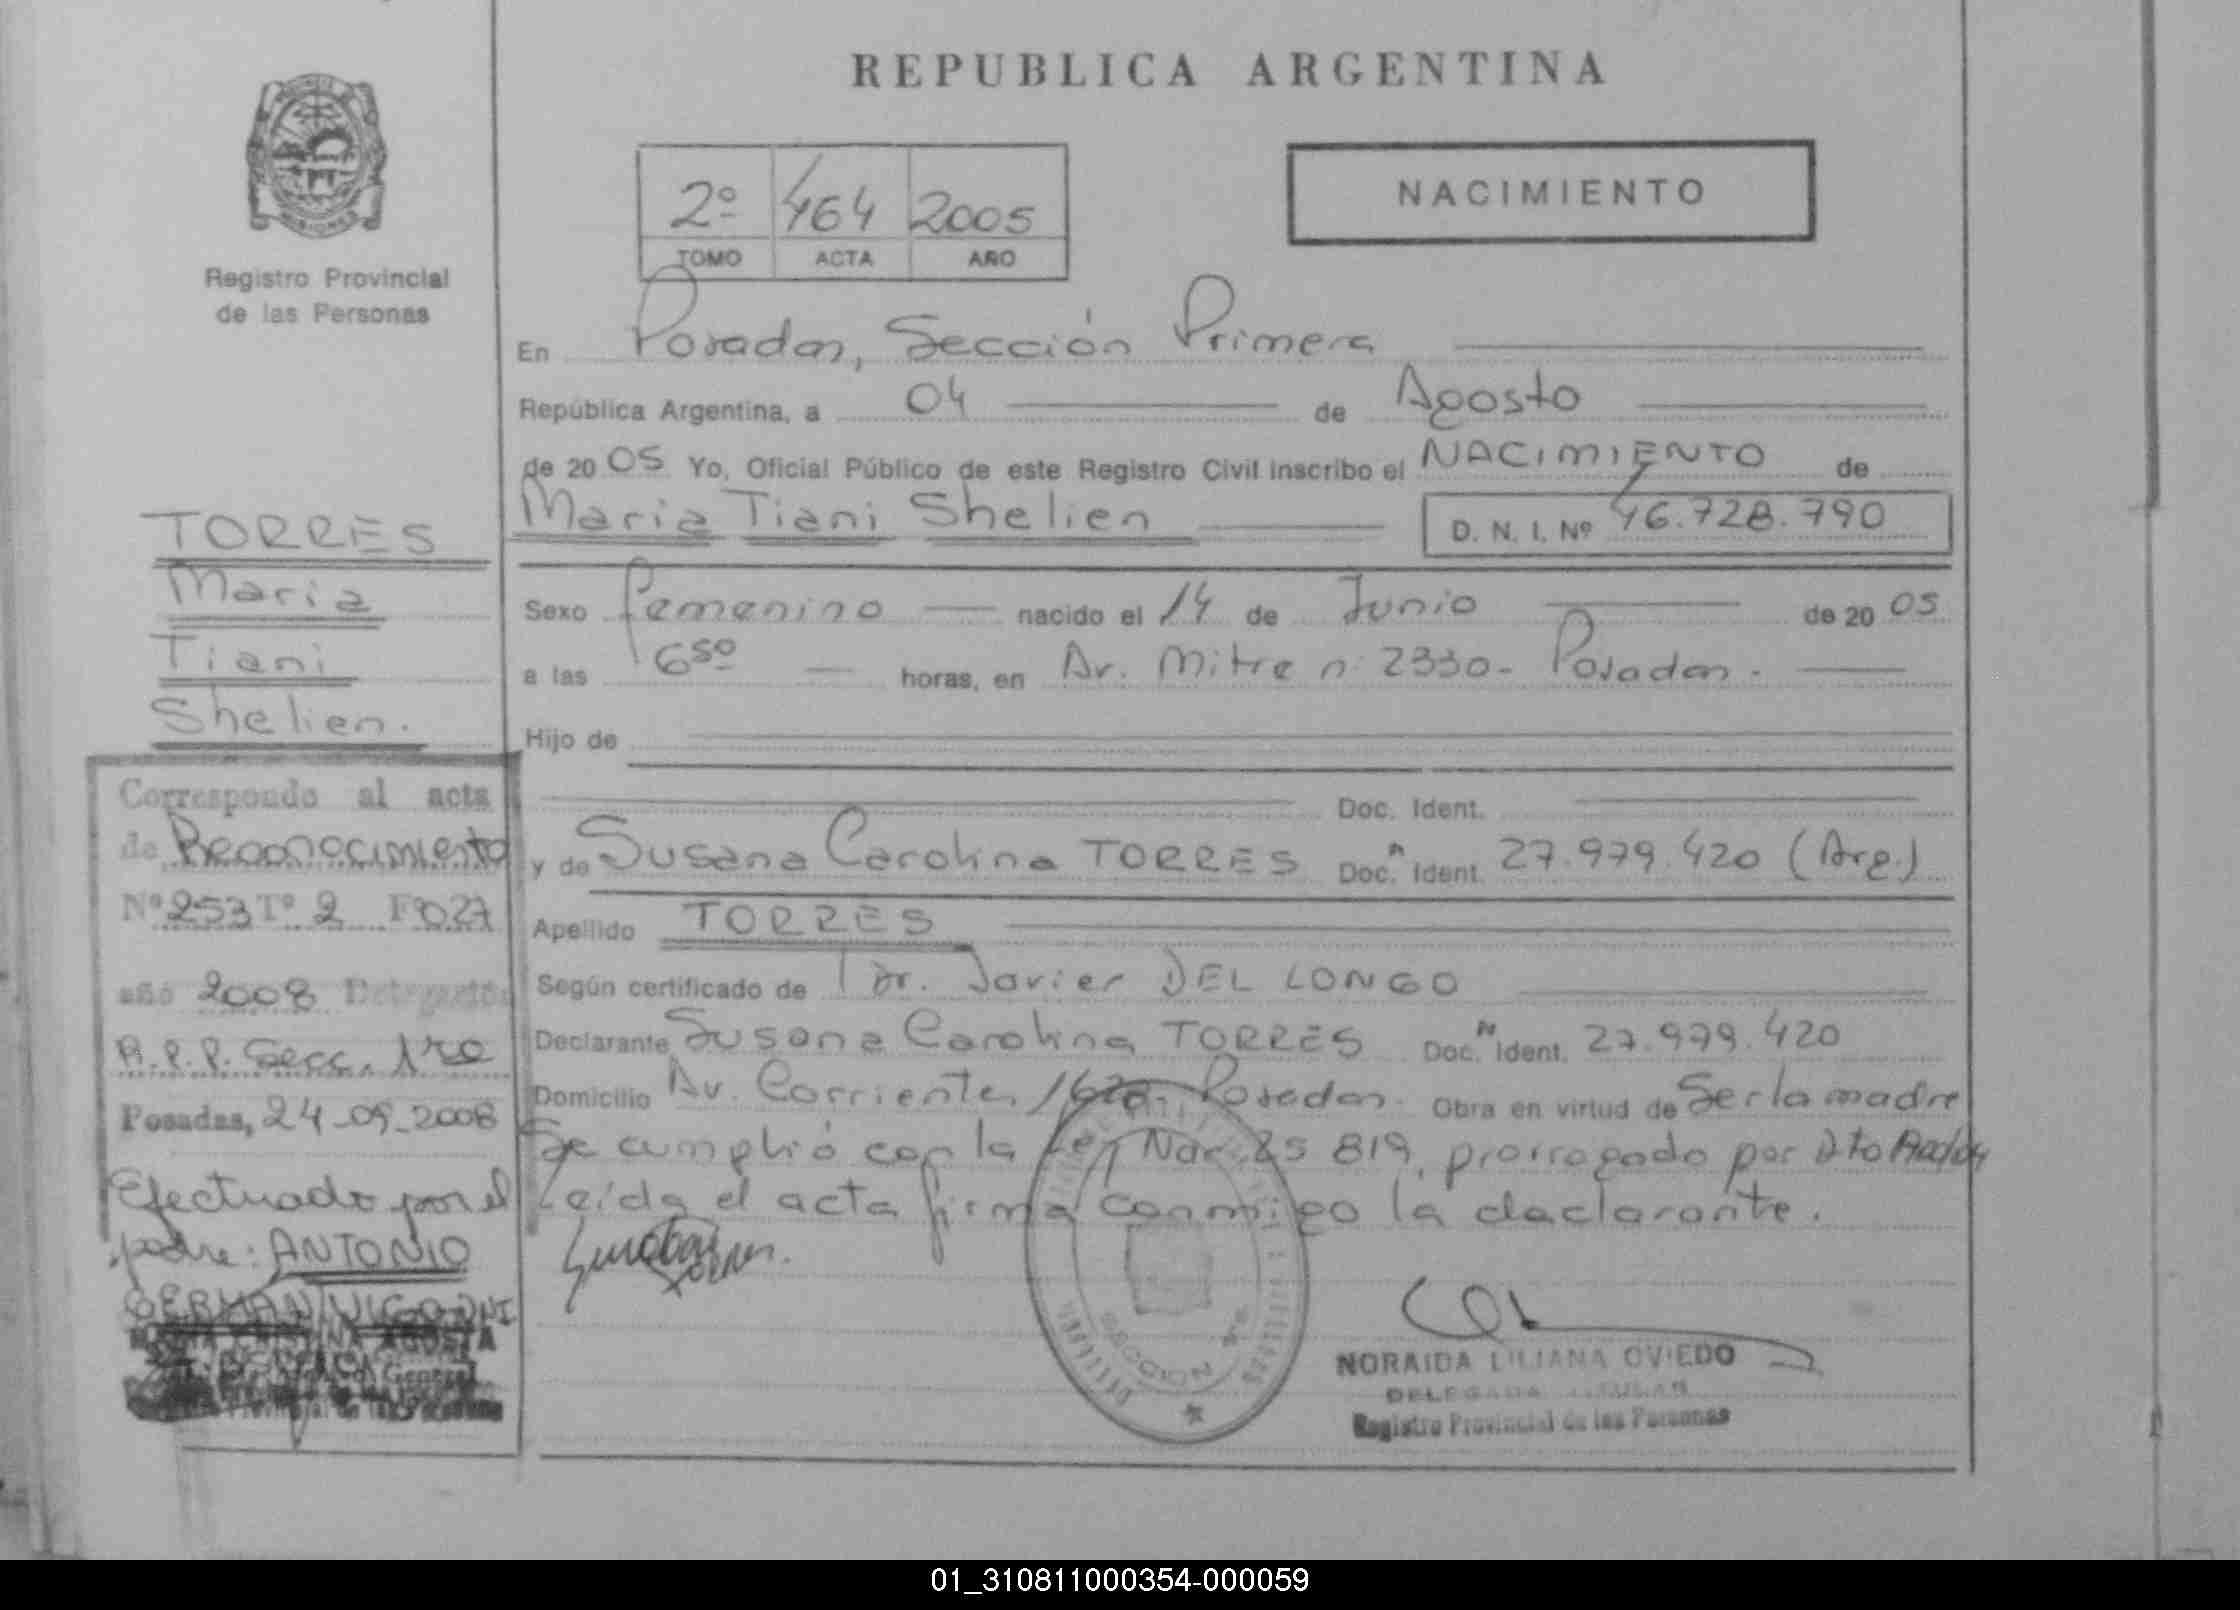 REPUBLICA ARGENTINA
MISIONES
Registro Provincial
de las Personas
2º 464 2005
TOMO ACTA AÑO
NACIMIENTO
En Posadas, Sección Primera
República Argentina, a 04 de Agosto
de 2005 Yo, Oficial Público de este Registro Civil inscribo el NACIMIENTO de
Maria Tiani Shelien D. N. I. Nº 46.728.790
Sexo femenino nacido el 14 de Junio de 2005
a las 6 50 horas, en Av. Mitre n: 2330- Posadas.
Hijo de
Doc. Ident.
y de Susana Carolina TORRES Doc. Ident. 27.979.420 (Arg.)
Apellido TORRES
Según certificado de Dr. Javier DEL LONGO
Declarante Susana Carolina TORRES Doc. Ident. 27.979.420
Domicilio Av. Corrientes Posadas. Obra en virtud de Ser la madre
Se cumplió con la Ley Nac. 25 819, prorrogado por Dto
Leída el acta firma conmigo la declarante.
SECCION
NORAIDA LILIANA OVIEDO
DELEGADA TITULAR
Registro Provincial de las Personas
TORRES
Maria
Tiani
Shelien.
Corresponde al acta
de Reconocimiento
Nº 253 Tº 2 Fº 027
año 2008 Delegación
R.P.P. Secc. 1ra
Posadas, 24-09-2008
Efectuado por el
padre: ANTONIO
GERMAN DNI
General
Provincial de las Personas
01_310811000354-000059